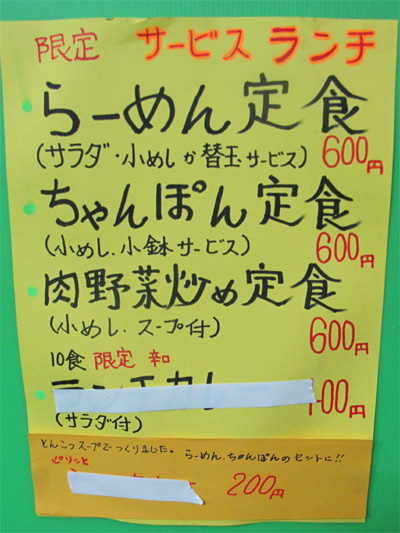 限定 サービス ランチ
らーめん定食
(サラダ・小めしか替玉サービス) 600円
ちゃんぽん定食
(小めし.小鉢サービス) 600円
肉野菜炒め定食
(小めし.スープ付) 600円
10食 限定 辛和
00円
(サラダ付)
とんこつスープでつくりました。 らーめん、ちゃんぽんのセットに!!
ピリッと
200円